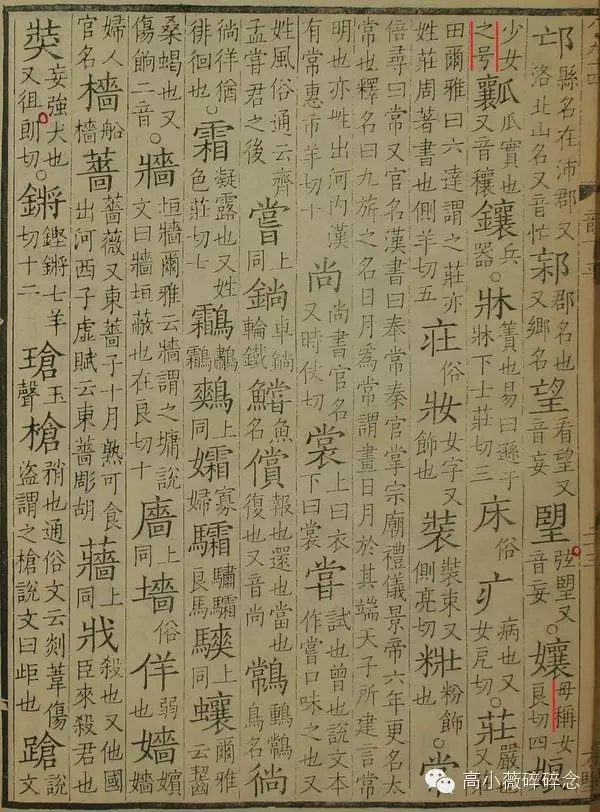 邙縣名在沛郡又洛北山名又音忙郡名也又鄉名望看望又音妄朢弦朢又音妄。孃母稱女良切四娘
少女之号瓤瓜實也又音穰鑲兵器。牀簀也易曰巽牀下士莊切三床俗疒病也又女戹切。莊嚴也又
田爾雅曰六達謂之莊亦姓莊周著書也側羊切五㽵俗妝女字又飾也裝裝束又側亮切粧粉飾也。常
倍尋曰常又官名漢書曰奉常秦官掌宗廟禮儀景帝六年更名太常也釋名曰九旂之名日月爲常謂畫日月於其端天子所建言常
明也亦姓出河內漢有常惠市羊切十尚尚書官名又時仗切裳上曰衣下曰裳甞試也曾也說文本作嘗口味之也又
姓風俗通云齊孟嘗君之後嘗上同鋿車鋿輪鐵鱨魚名償報也還也當也復也又音尚鳥名徜
徜徉猶徘徊也。霜凝露也又姓色莊切七鸘鷫鸘鷞上同孀寡婦驦驌驦良馬騻上同蠰爾雅云齧
桑蝎也又傷餉二音。牆垣牆爾雅云牆謂之墉說文曰牆垣蔽也在良切十廧上同墻俗佯弱也嬙嬪嬙
婦人官名檣船檣薔薔薇又東薔子十月熟可食出河西子虛賦云東薔彫胡蘠上同戕殺也又他國臣來殺君也
奘妄強犬也又徂朗切。鏘鏗鏘七羊切十二瑲玉聲槍矟也通俗文云剡葦傷盜謂之槍說文曰歫也蹌說文
高小薇碎碎念